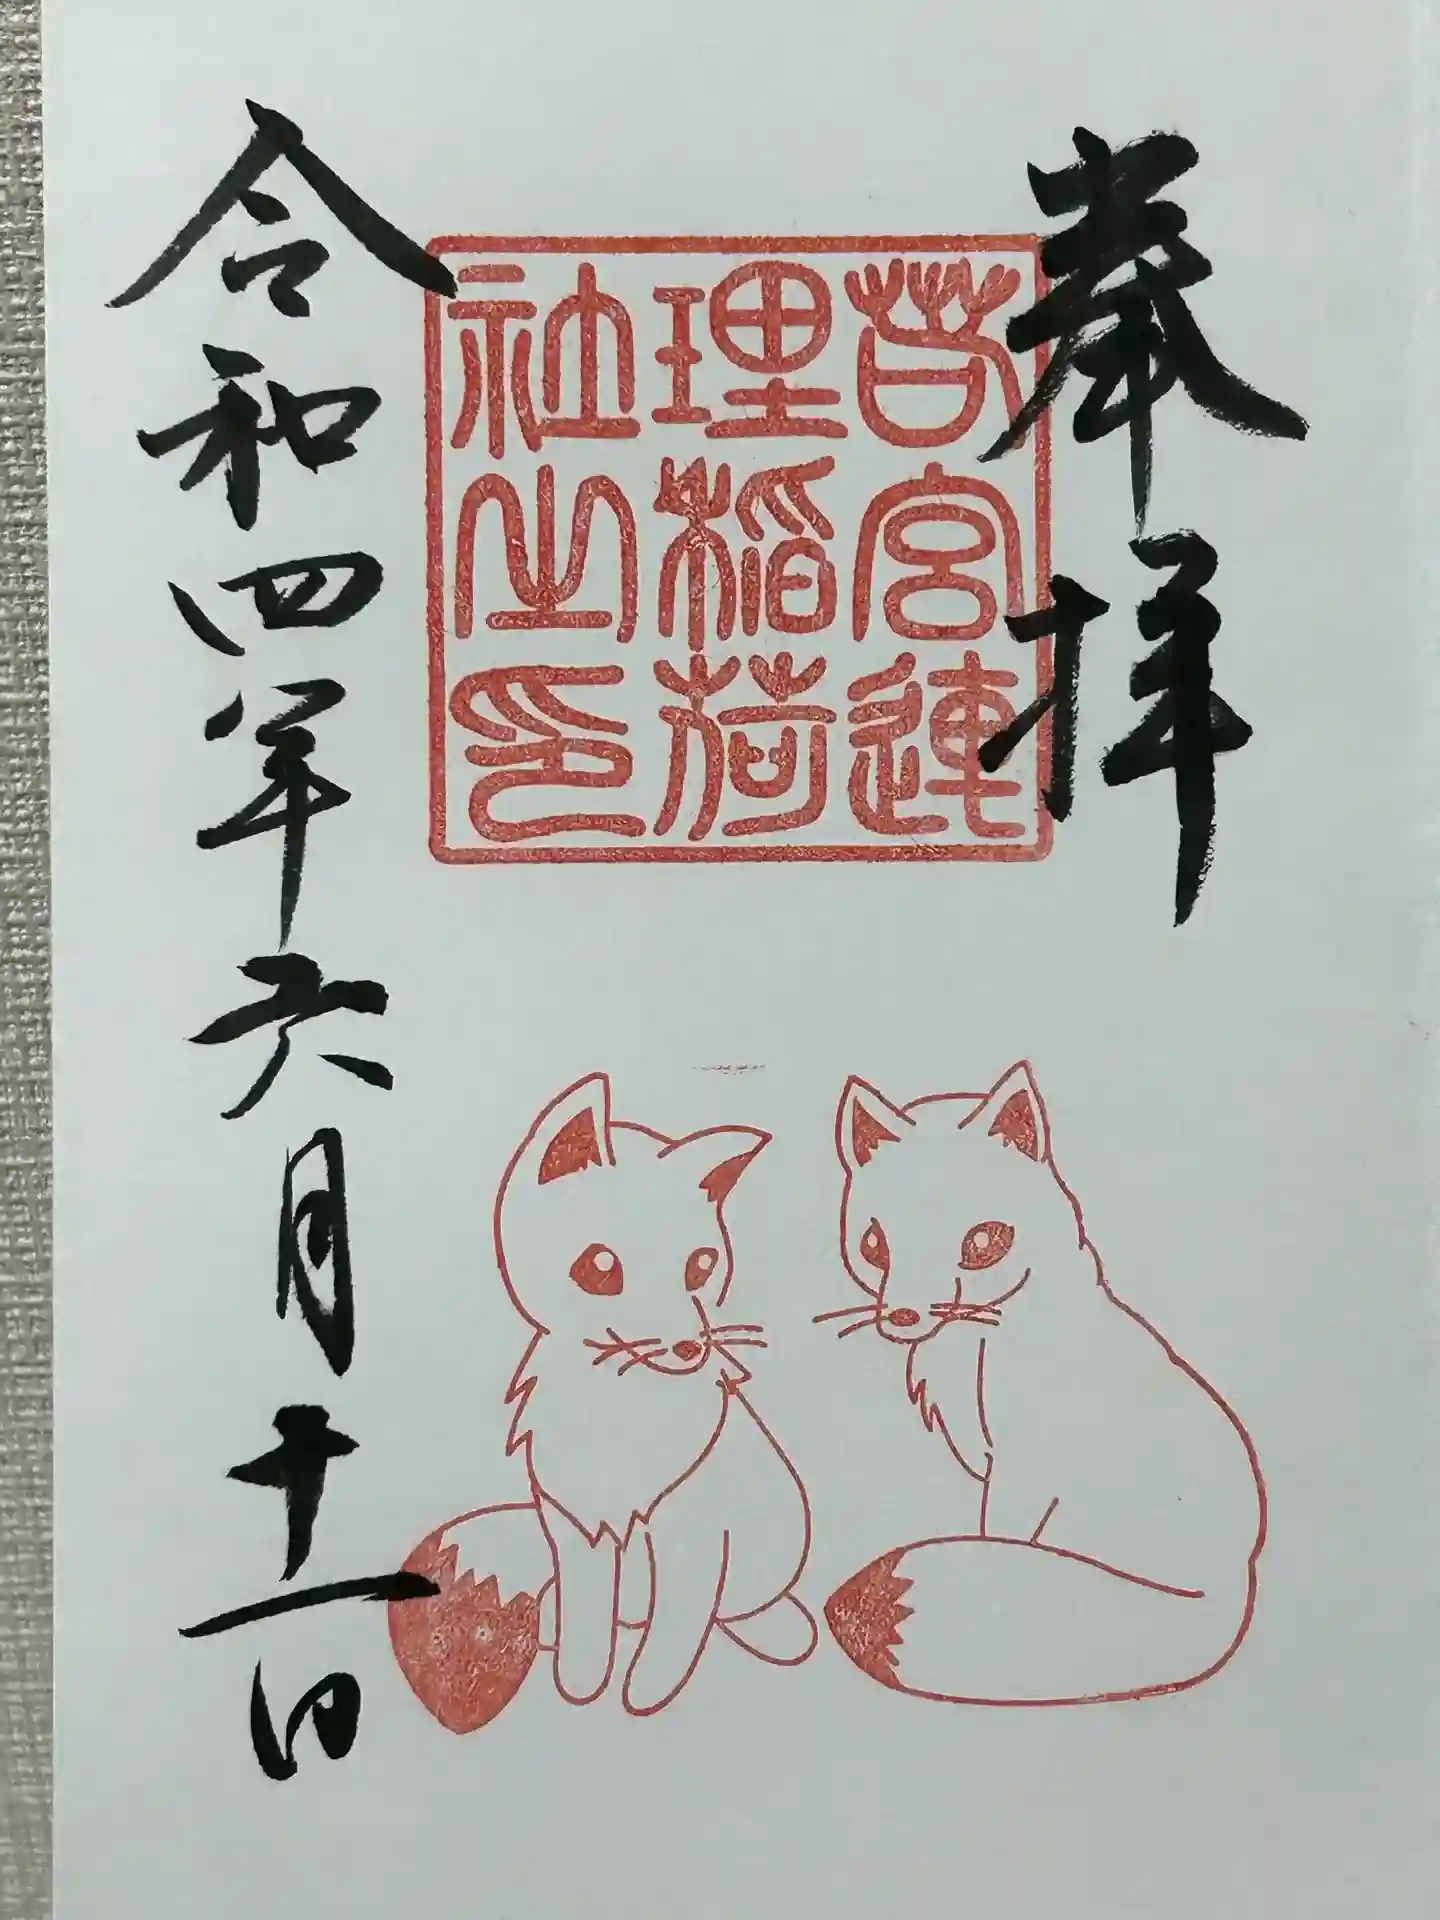 奉拝
若宮連
理稲荷
社之印
令和四年六月十一日